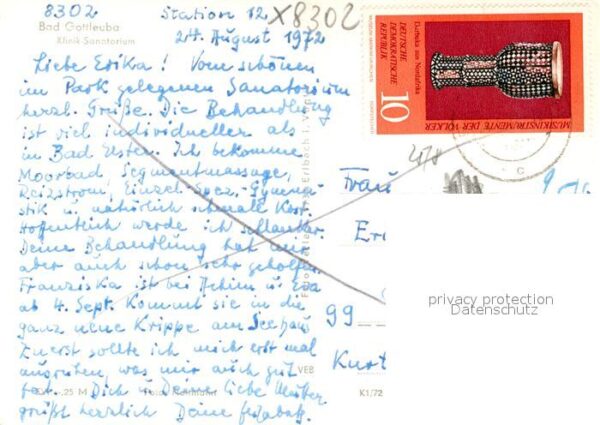 8302
Station 12
X8302
Bad Gottleuba
Klinik Sanatorium
24. August 1972
Liebe Erika! Vom schönen
im Park gelegenen Sanatorium
herzl. Grüße. Die Behandlung
ist viel individueller als
in Bad Elster. Ich bekomme
Moorbad, Segmentmassage,
Reizstrom, Einzel-spez.-Gymna-
stik u. natürlich schmale Kost.
Hoffentlich werde ich schlanker.
Deine Behandlung hat mir
aber auch schon sehr geholfen.
Franziska ist bei Achim u. Eva
ab 4. Sept. kommt sie in die
ganz neue Krippe am Seehaus
Zuerst sollte ich mich erst mal
ausruhen, was mir auch gut
tat. Dich u. Deine liebe Mutter
grüßt herzlich Deine
-,25 M
VEB
K1/72
Darbuka aus Nordafrika
DEUTSCHE
DEMOKRATISCHE
REPUBLIK
10
MUSIKINSTRUMENTE DER VÖLKER
C
Frau
Er
99
Kurt
privacy protection
Datenschutz